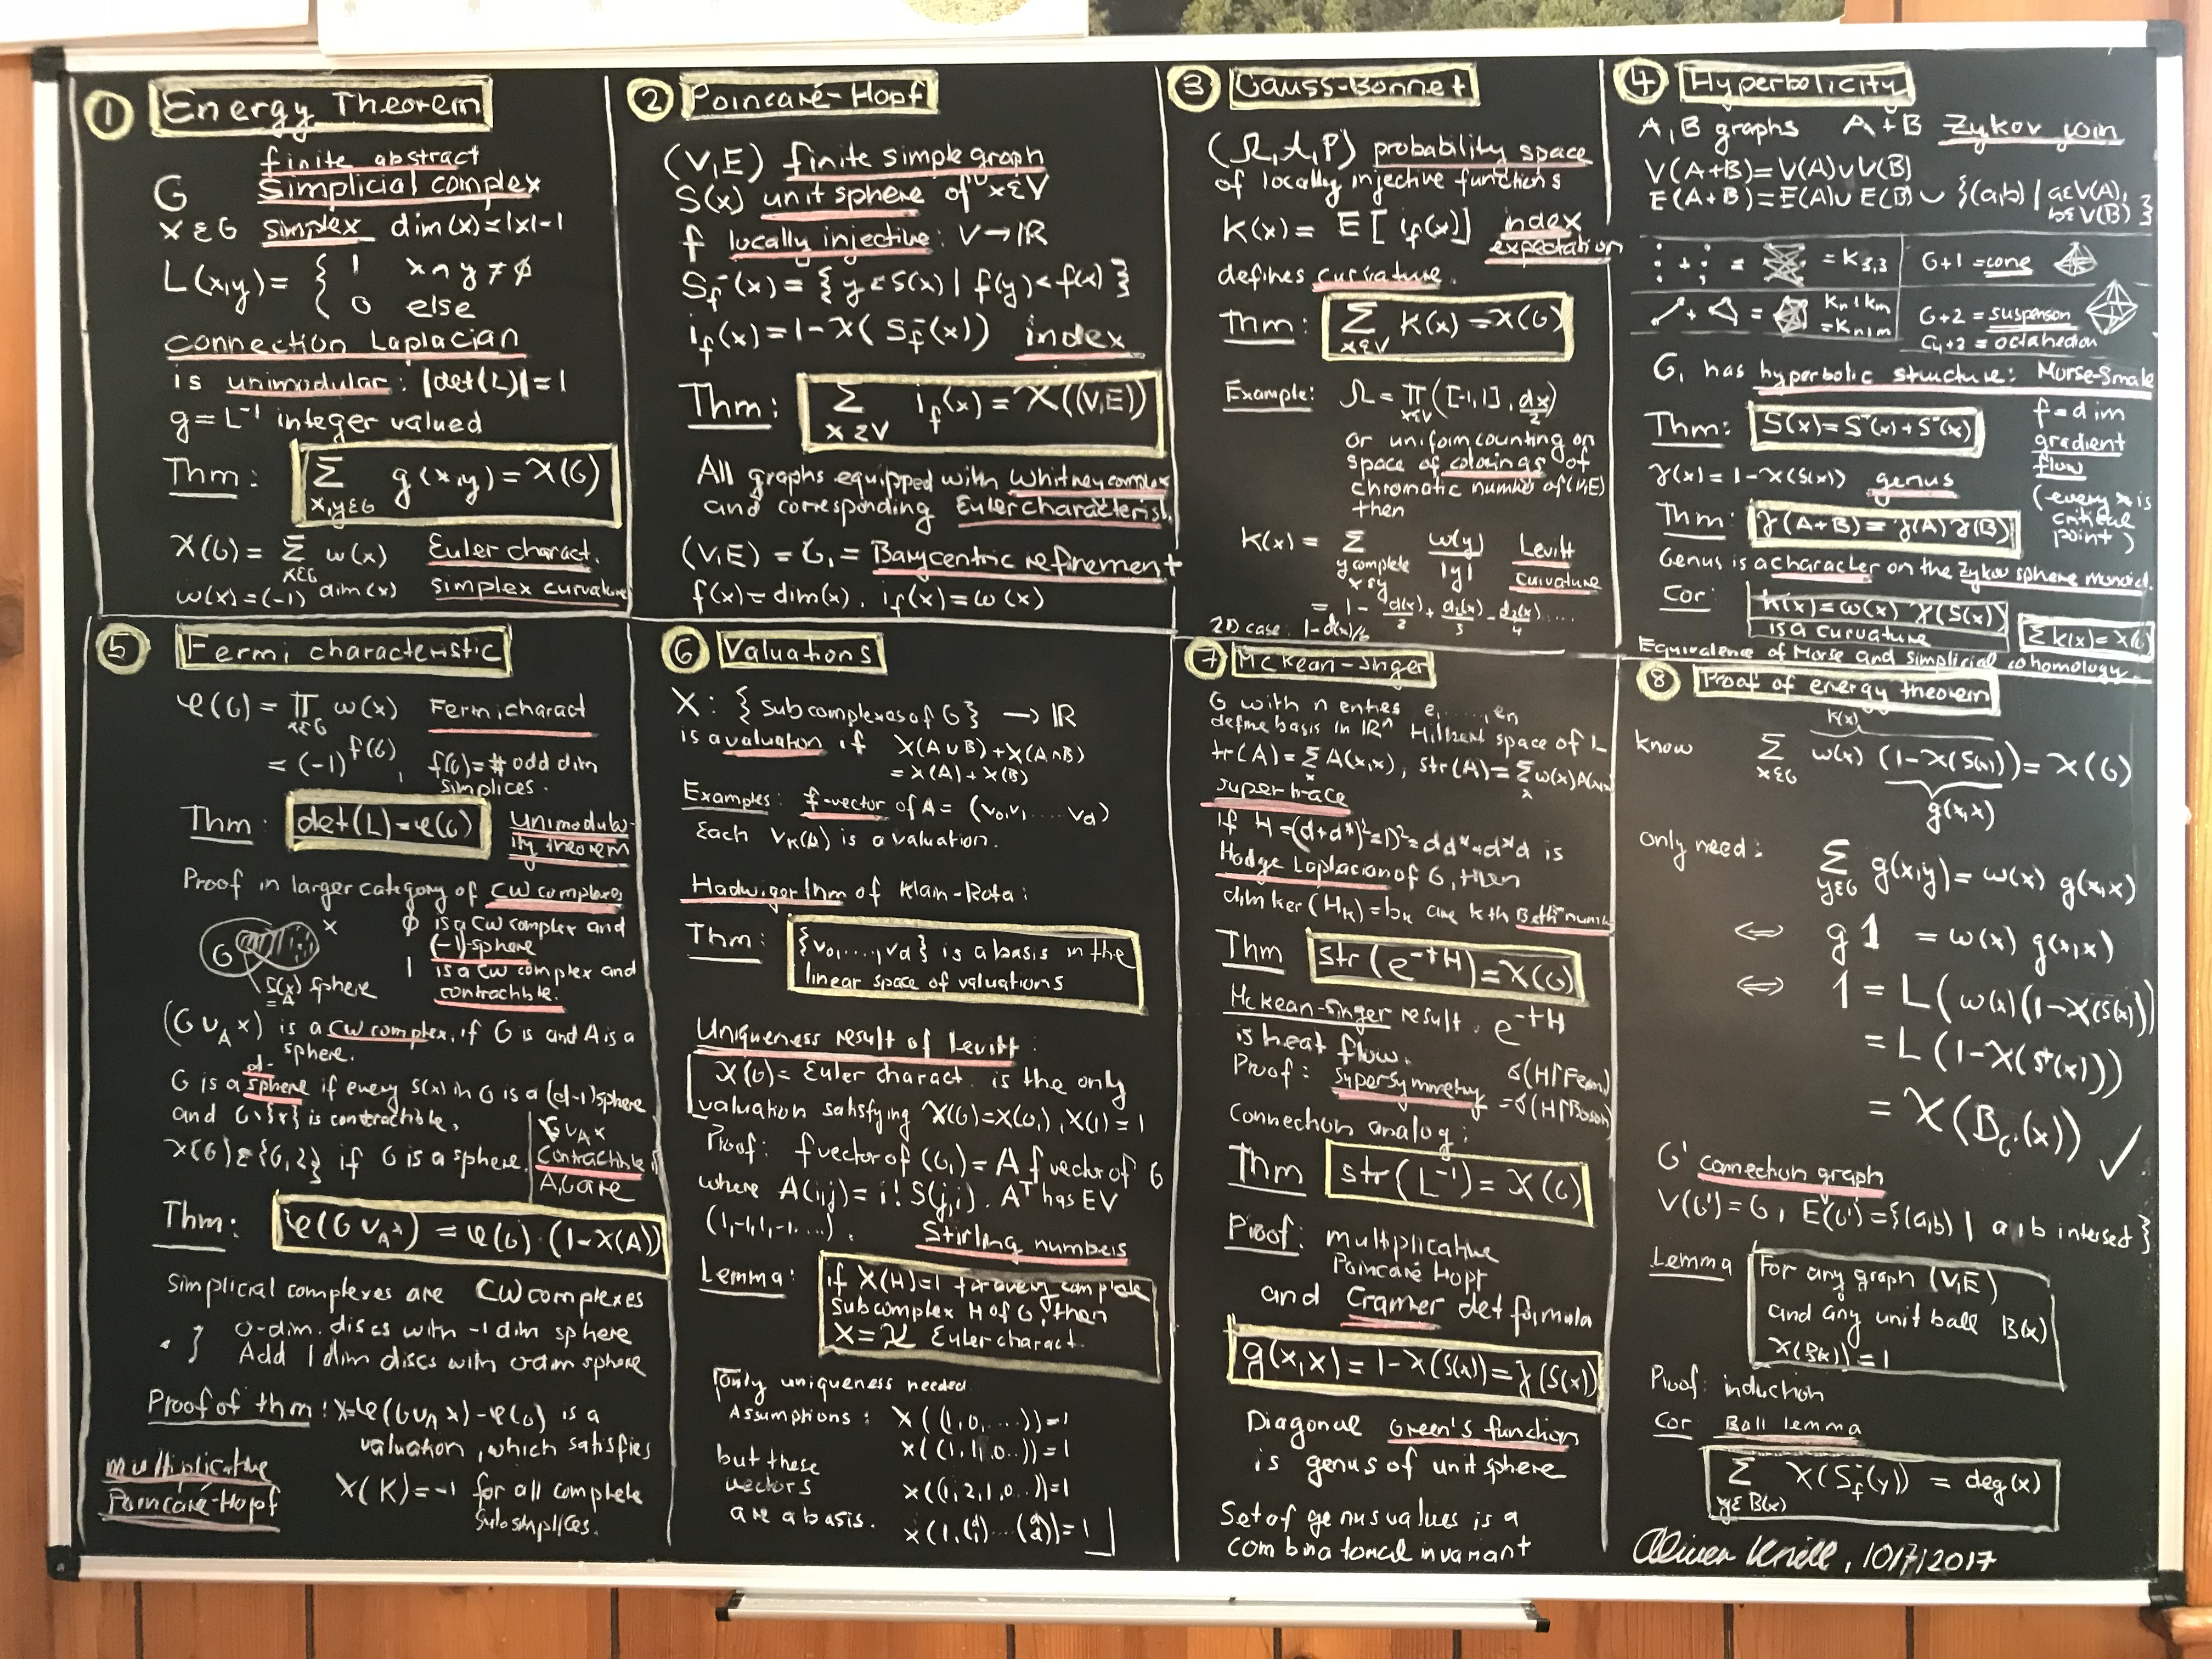 ① Energy Theorem
finite abstract
G simplicial complex
x ∈ G simplex dim(x)=|x|-1
L(x,y) = { 1 x∩y ≠ ∅
0 else
connection Laplacian
is unimodular: |det(L)|=1
g=L⁻¹ integer valued
Thm: Σ_{x,y∈G} g(x,y) = χ(G)
χ(G) = Σ_{x∈G} ω(x) Euler charact.
ω(x)=(-1)^{dim(x)} simplex curvature
② Poincaré-Hopf
(V,E) finite simple graph
S(x) unit sphere of x∈V
f locally injective: V→ℝ
S_f⁻(x) = { y∈S(x) | f(y)<f(x) }
i_f(x)=1-χ(S_f⁻(x)) index
Thm: Σ_{x∈V} i_f(x) = χ((V,E))
All graphs equipped with Whitney complex
and corresponding Euler characterist.
(V,E) = G₁ = Barycentric refinement
f(x)=dim(x), i_f(x)=ω(x)
③ Gauss-Bonnet
(Ω,A,P) probability space
of locally injective functions
K(x) = E[ i_f(x)] index
expectation
defines curvature.
Thm: Σ_{x∈V} K(x) = χ(G)
Example: Ω = Π_{x∈V} ([-1,1], dx/2)
or uniform counting on
space of colorings of
chromatic number of (V,E)
then
K(x) = Σ_{y complete x≤y} ω(y)/|y| Levitt
curvature
= 1 - d(x)/2 + d₂(x)/3 - d₃(x)/4 ....
2D case: 1-d(x)/6
④ Hyperbolicity
A,B graphs A+B Zykov join
V(A+B)=V(A)∪V(B)
E(A+B)=E(A)∪E(B)∪{(a,b) | a∈V(A),
b∈V(B) }
= K₃,₃
G+1 = cone
Kn+Km
=Kn+m
G+2 = suspension
C₄+2 = octahedron
G₁ has hyperbolic structure: Morse-Smale
Thm: S(x)=S⁻(x)+S⁺(x)
f=dim
gradient
flow
γ(x)=1-χ(S(x)) genus
(every x is
critical
point)
Thm: γ(A+B) = γ(A)γ(B)
Genus is a character on the Zykov sphere monoid.
Cor: K(x)=ω(x) χ(S(x))
is a curvature
Σ K(x) = χ(G)
Equivalence of Morse and simplicial cohomology.
⑤ Fermi characteristic
φ(G) = Π_{x∈G} ω(x) Fermi charact
= (-1)^{f(G)}, f(G)=# odd dim
simplices.
Thm: det(L)=φ(G) Unimodula-
rity theorem
Proof in larger category of CW complexes
G x
S(x) sphere
=A
∅ is a CW complex and
(-1)-sphere
1 is a CW complex and
contractible.
(G ∪_A x) is a CW complex, if G is and A is a
sphere.
G is a d-sphere if every S(x) in G is a (d-1) sphere
and G\{x} is contractible.
χ(G)∈{0,2} if G is a sphere.
G∪_A x
contractible if
A,G are
Thm: φ(G ∪_A x) = φ(G) · (1-χ(A))
Simplicial complexes are CW complexes
0-dim. discs with -1 dim sphere
Add 1 dim discs with 0 dim sphere
Proof of thm: X=φ(G∪_A x)-φ(G) is a
valuation, which satisfies
X(K)=-1 for all complete
subsimplices.
multiplicative
Poincaré-Hopf
⑥ Valuations
X: {subcomplexes of G} → ℝ
is a valuation if X(A∪B)+X(A∩B)
= X(A)+X(B)
Examples: f-vector of A = (v₀,v₁ .... v_d)
Each v_k(A) is a valuation.
Hadwiger thm of Klain-Rota:
Thm: {v₀,...,v_d} is a basis in the
linear space of valuations
Uniqueness result of Levitt:
χ(G)= Euler charact. is the only
valuation satisfying X(G)=X(G₁), X(1)=1
Proof: f vector of (G₁) = A f vector of G
where A(i,j)=i! S(j,i). Aᵀ has EV
(1,-1,1,-1....). Stirling numbers
Lemma: if X(H)=1 for every complete
subcomplex H of G, then
X=χ Euler charact.
Only uniqueness needed
Assumptions: X((1,0,...))=1
X((1,1,0..))=1
but these
vectors X((1,2,1,0..))=1
are a basis. X(1,(d 1)...(d d))=1
⑦ McKean-Singer
G with n enties e₁.....,en
define basis in ℝⁿ Hilbert space of L
tr(A)=Σ_x A(x,x), str(A)=Σ_x ω(x)A(x,x)
super trace
if H=(d+d*)²=D²=dd*+d*d is
Hodge Laplacian of G, then
dim ker(H_k)=b_k are kth Betti number
Thm str(e^{-tH})=χ(G)
McKean-Singer result. e^{-tH}
is heat flow.
Proof: supersymmetry σ(H|Ferm)
=σ(H|Boson)
Connection analog:
Thm str(L⁻¹)=χ(G)
Proof: multiplicative
Poincaré Hopf
and Cramer det formula
g(x,x)=1-χ(S(x))=γ(S(x))
Diagonal Green's function
is genus of unit sphere
Set of genus values is a
combinatorial invariant
⑧ Proof of energy theorem
K(x)
know Σ_{x∈G} ω(x) (1-χ(S(x))) = χ(G)
g(x,x)
only need: Σ_{y∈G} g(x,y) = ω(x) g(x,x)
⇔ g1 = ω(x) g(x,x)
⇔ 1 = L(ω(x)(1-χ(S(x)))
= L(1-χ(S⁺(x)))
= χ(B_{G'}(x)) ✓
G' connection graph
V(G')=G, E(G')={(a,b) | a,b intersect}
Lemma For any graph (V,E)
and any unit ball B(x)
χ(B(x))=1
Proof: induction
Cor Ball lemma
Σ_{y∈B(x)} χ(S_f⁻(y)) = deg(x)
Oliver Knill, 10/7/2017